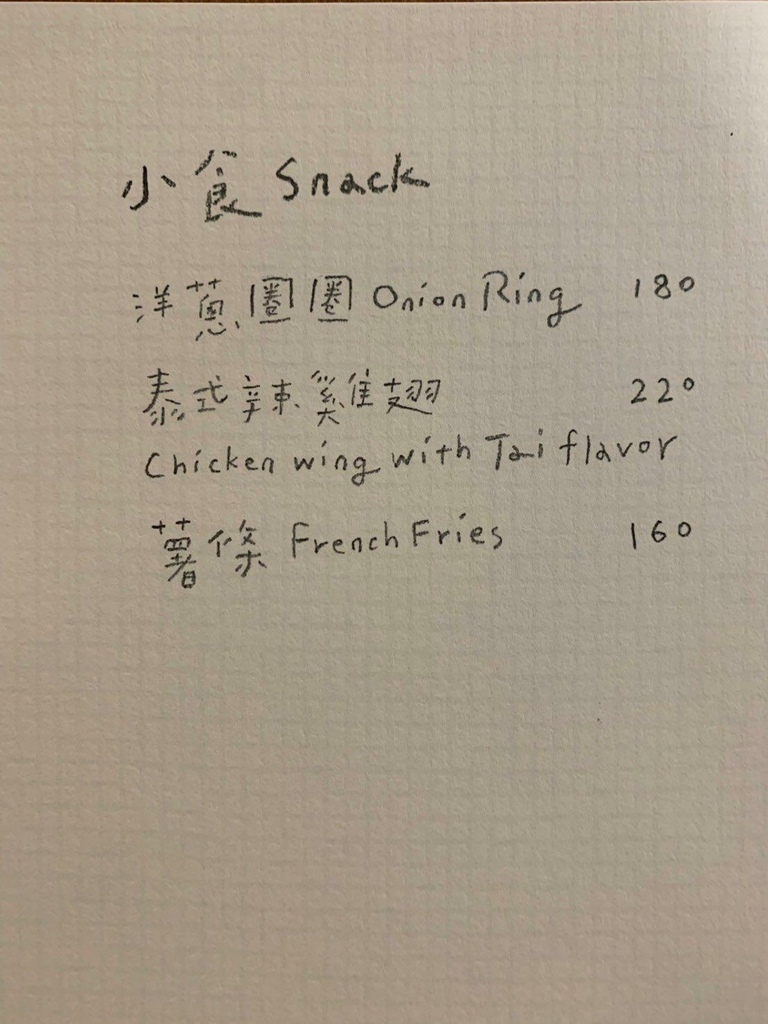 小食 Snack
洋蔥圈圈 Onion Ring 180
泰式辣雞翅 220
Chicken wing with Tai flavor
薯條 French Fries 160